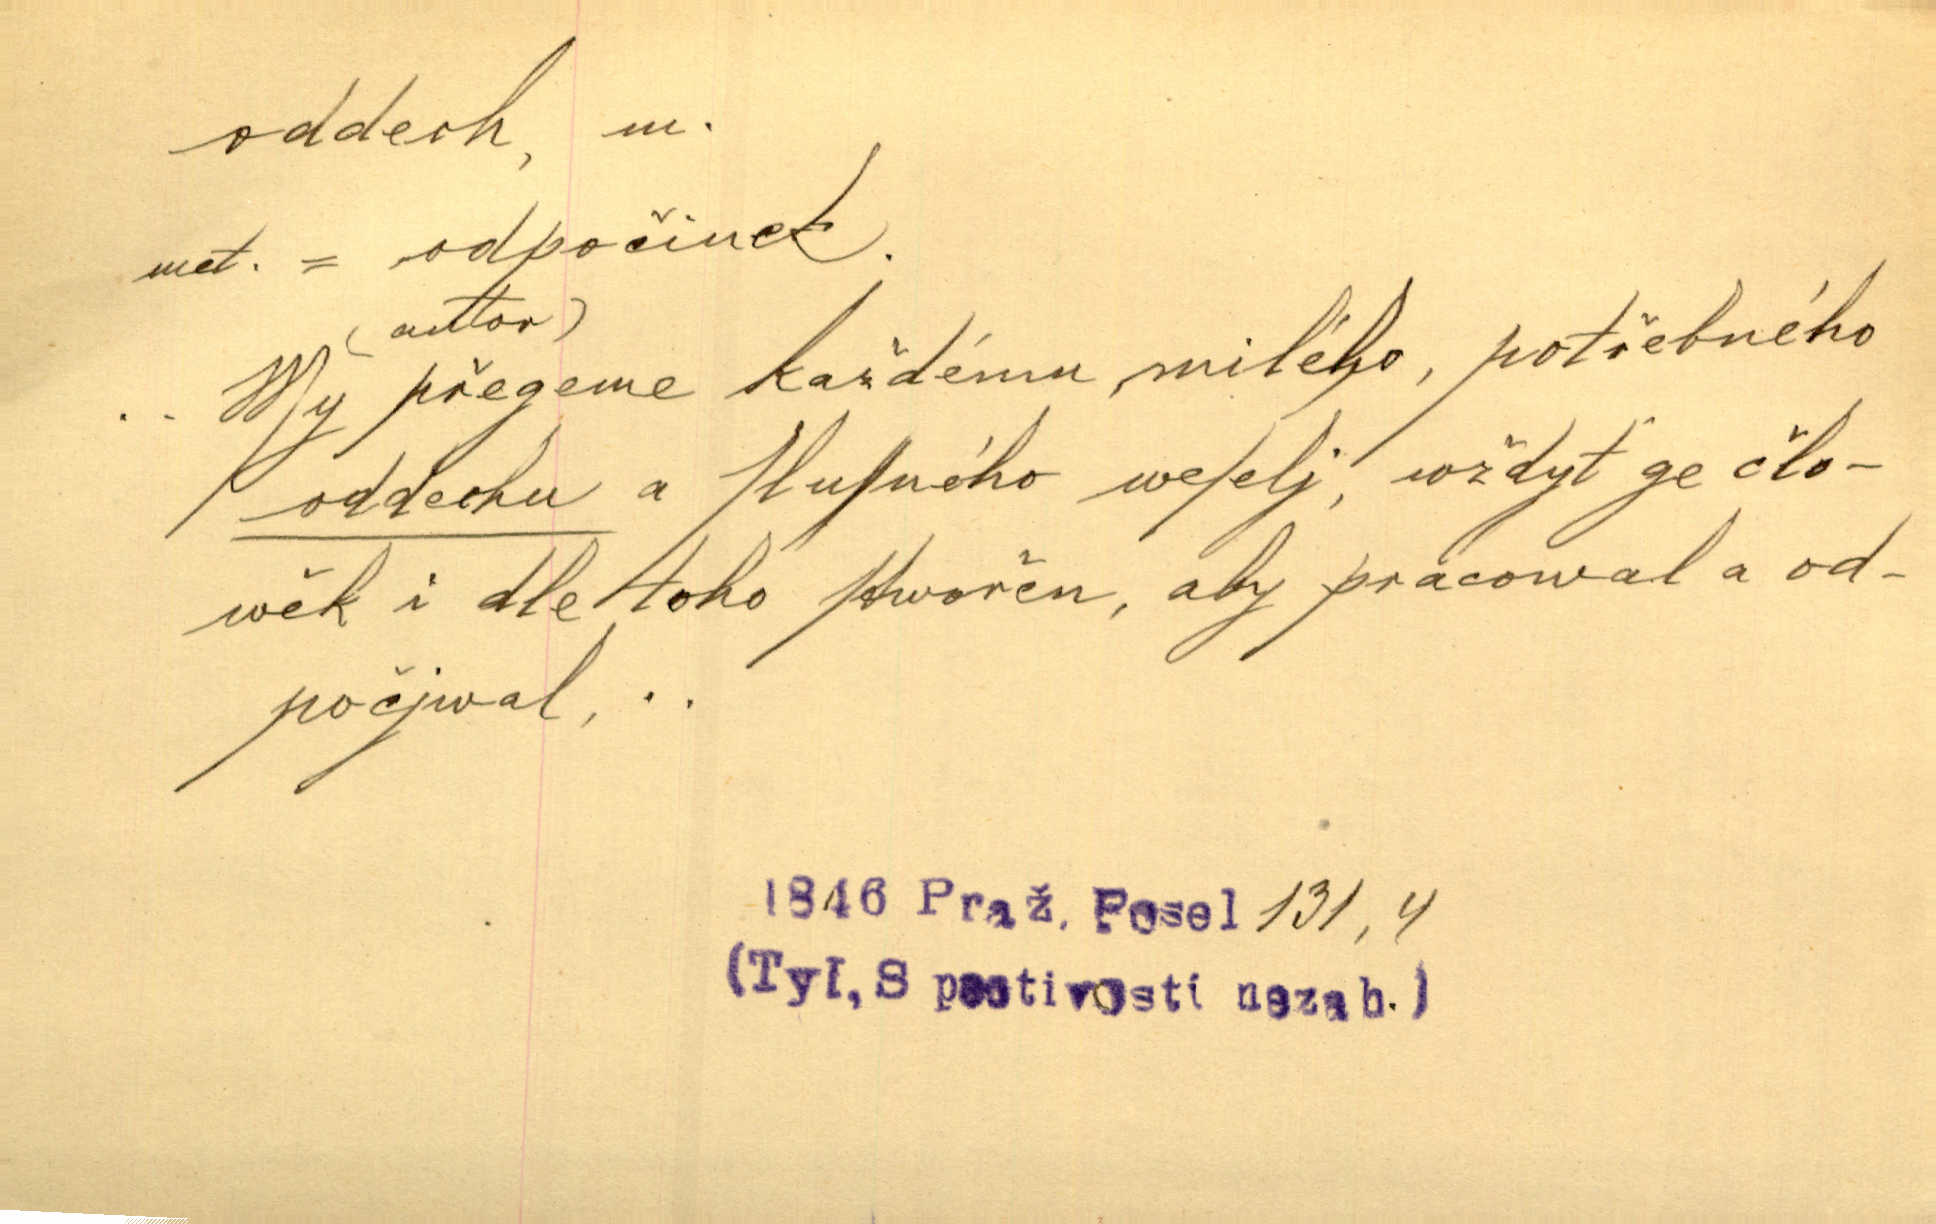 oddech, m.
met. = odpočinek.
(autor)
.. My přegeme každému milého, potřebného
oddechu a ſluſného weſelj, wždyť ge člo-
wěk i dle toho ſtwořen, aby pracowal a od-
počjwal, ..
1846 Praž. Posel 131, 4
(Tyl, S poctivostí nezah.)